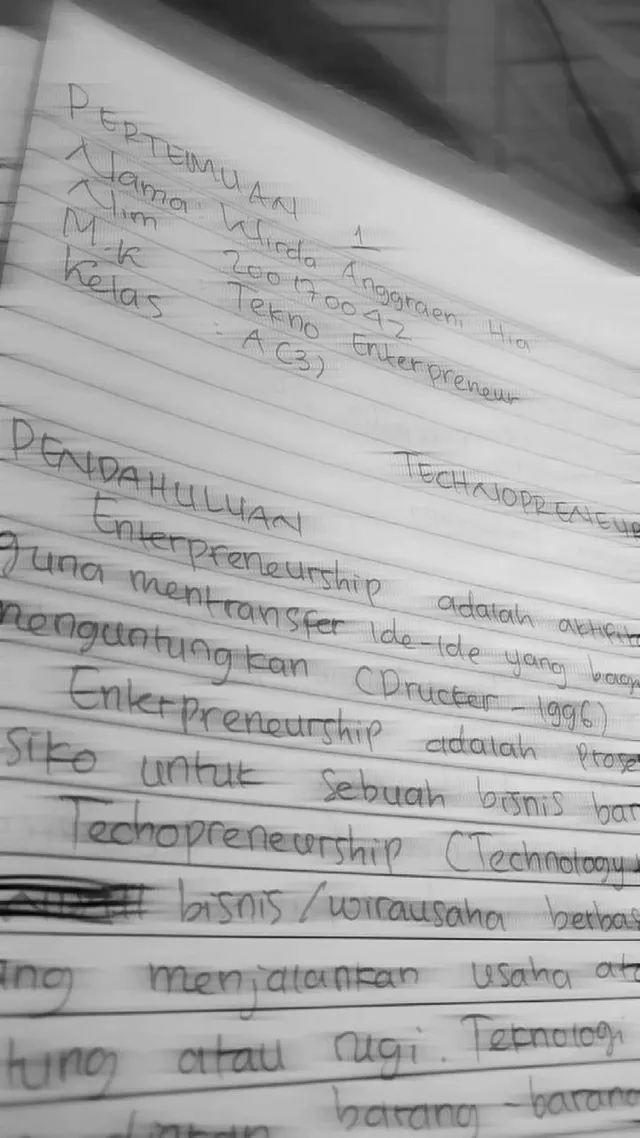 PERTEMUAN 1
Nama : Wirda Anggraeni Hia
Nim : 200170042
M.K : Tekno Enterpreneur
Kelas : A (3)
TECHNOPRENEU
PENDAHULUAN
Enterpreneurship adalah aktifita
guna mentransfer ide-ide yang bag
menguntungkan (Drucker - 1996)
Enterpreneurship adalah prose
siko untuk sebuah bisnis bar
Techopreneurship (Technology
bisnis/wirausaha berbas
ang menjalankan usaha ata
tung atau rugi. Teknologi
barang-barang